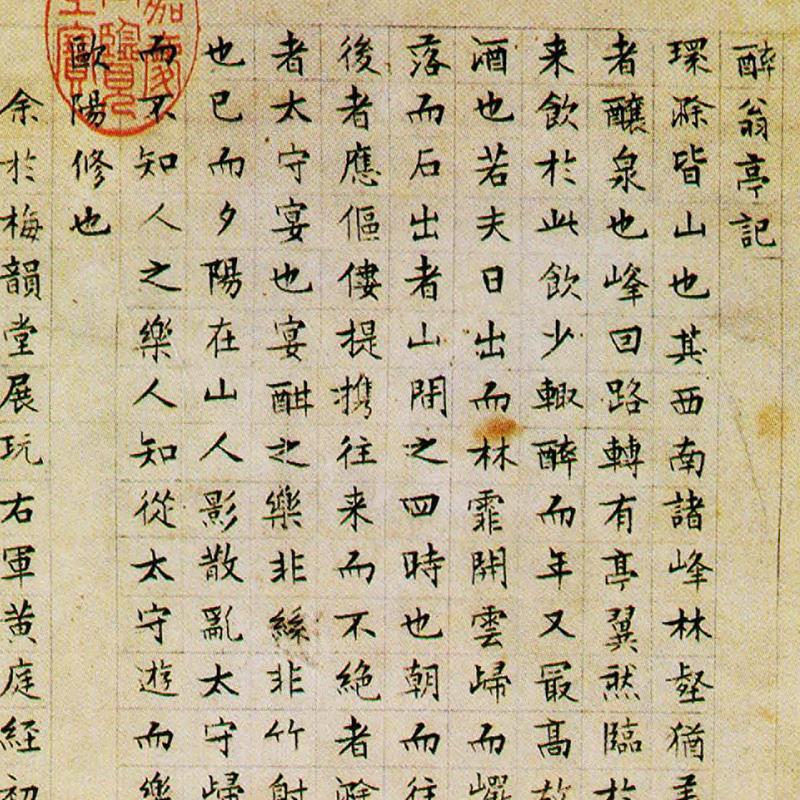 醉翁亭記
環滁皆山也其西南諸峰林壑猶美
者釀泉也峰回路轉有亭翼然臨於
来飲於此飲少輒醉而年又最高故
酒也若夫日出而林霏開雲歸而巖
落而石出者山間之四時也朝而往
後者應傴僂提攜往来而不絶者滁
者太守宴也宴酣之樂非絲非竹射
也已而夕陽在山人影散亂太守歸
而不知人之樂人知從太守遊而樂
歐陽修也
余於梅韻堂展玩右軍黄庭経初